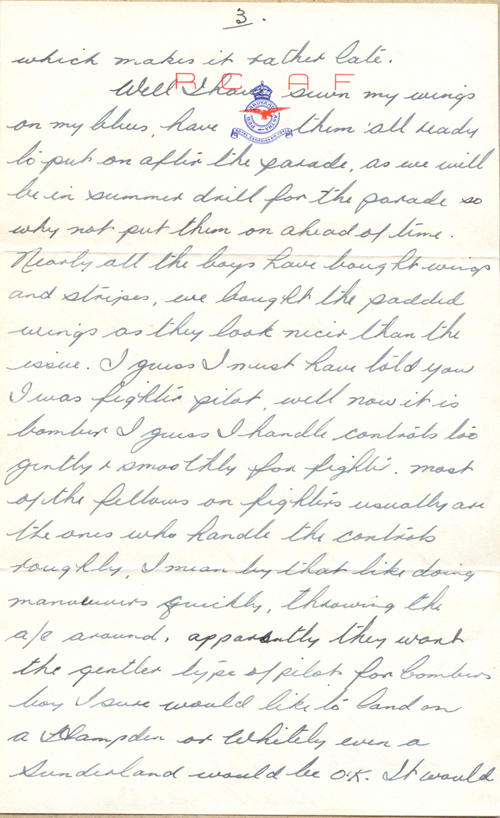 3.
which makes it rather late.
R C A F
Well I have sewn my wings
on my blues, have them all ready
to put on after the parade, as we will
be in summer drill for the parade so
why not put them on ahead of time.
Nearly all the boys have bought wings
and stripes, we bought the padded
wings as they look nicer than the
issue. I guess I must have told you
I was fighter pilot, well now it is
bomber I guess I handle controls too
gently & smoothly for fighter. most
of the fellows on fighters usually are
the ones who handle the controls
roughly, I mean by that like doing
manuevers quickly, throwing the
a/c around, apparently they want
the gentler type of pilot for bombers
boy I sure would like to land on
a Hampden or Whitely even a
Sunderland would be O.K. It would